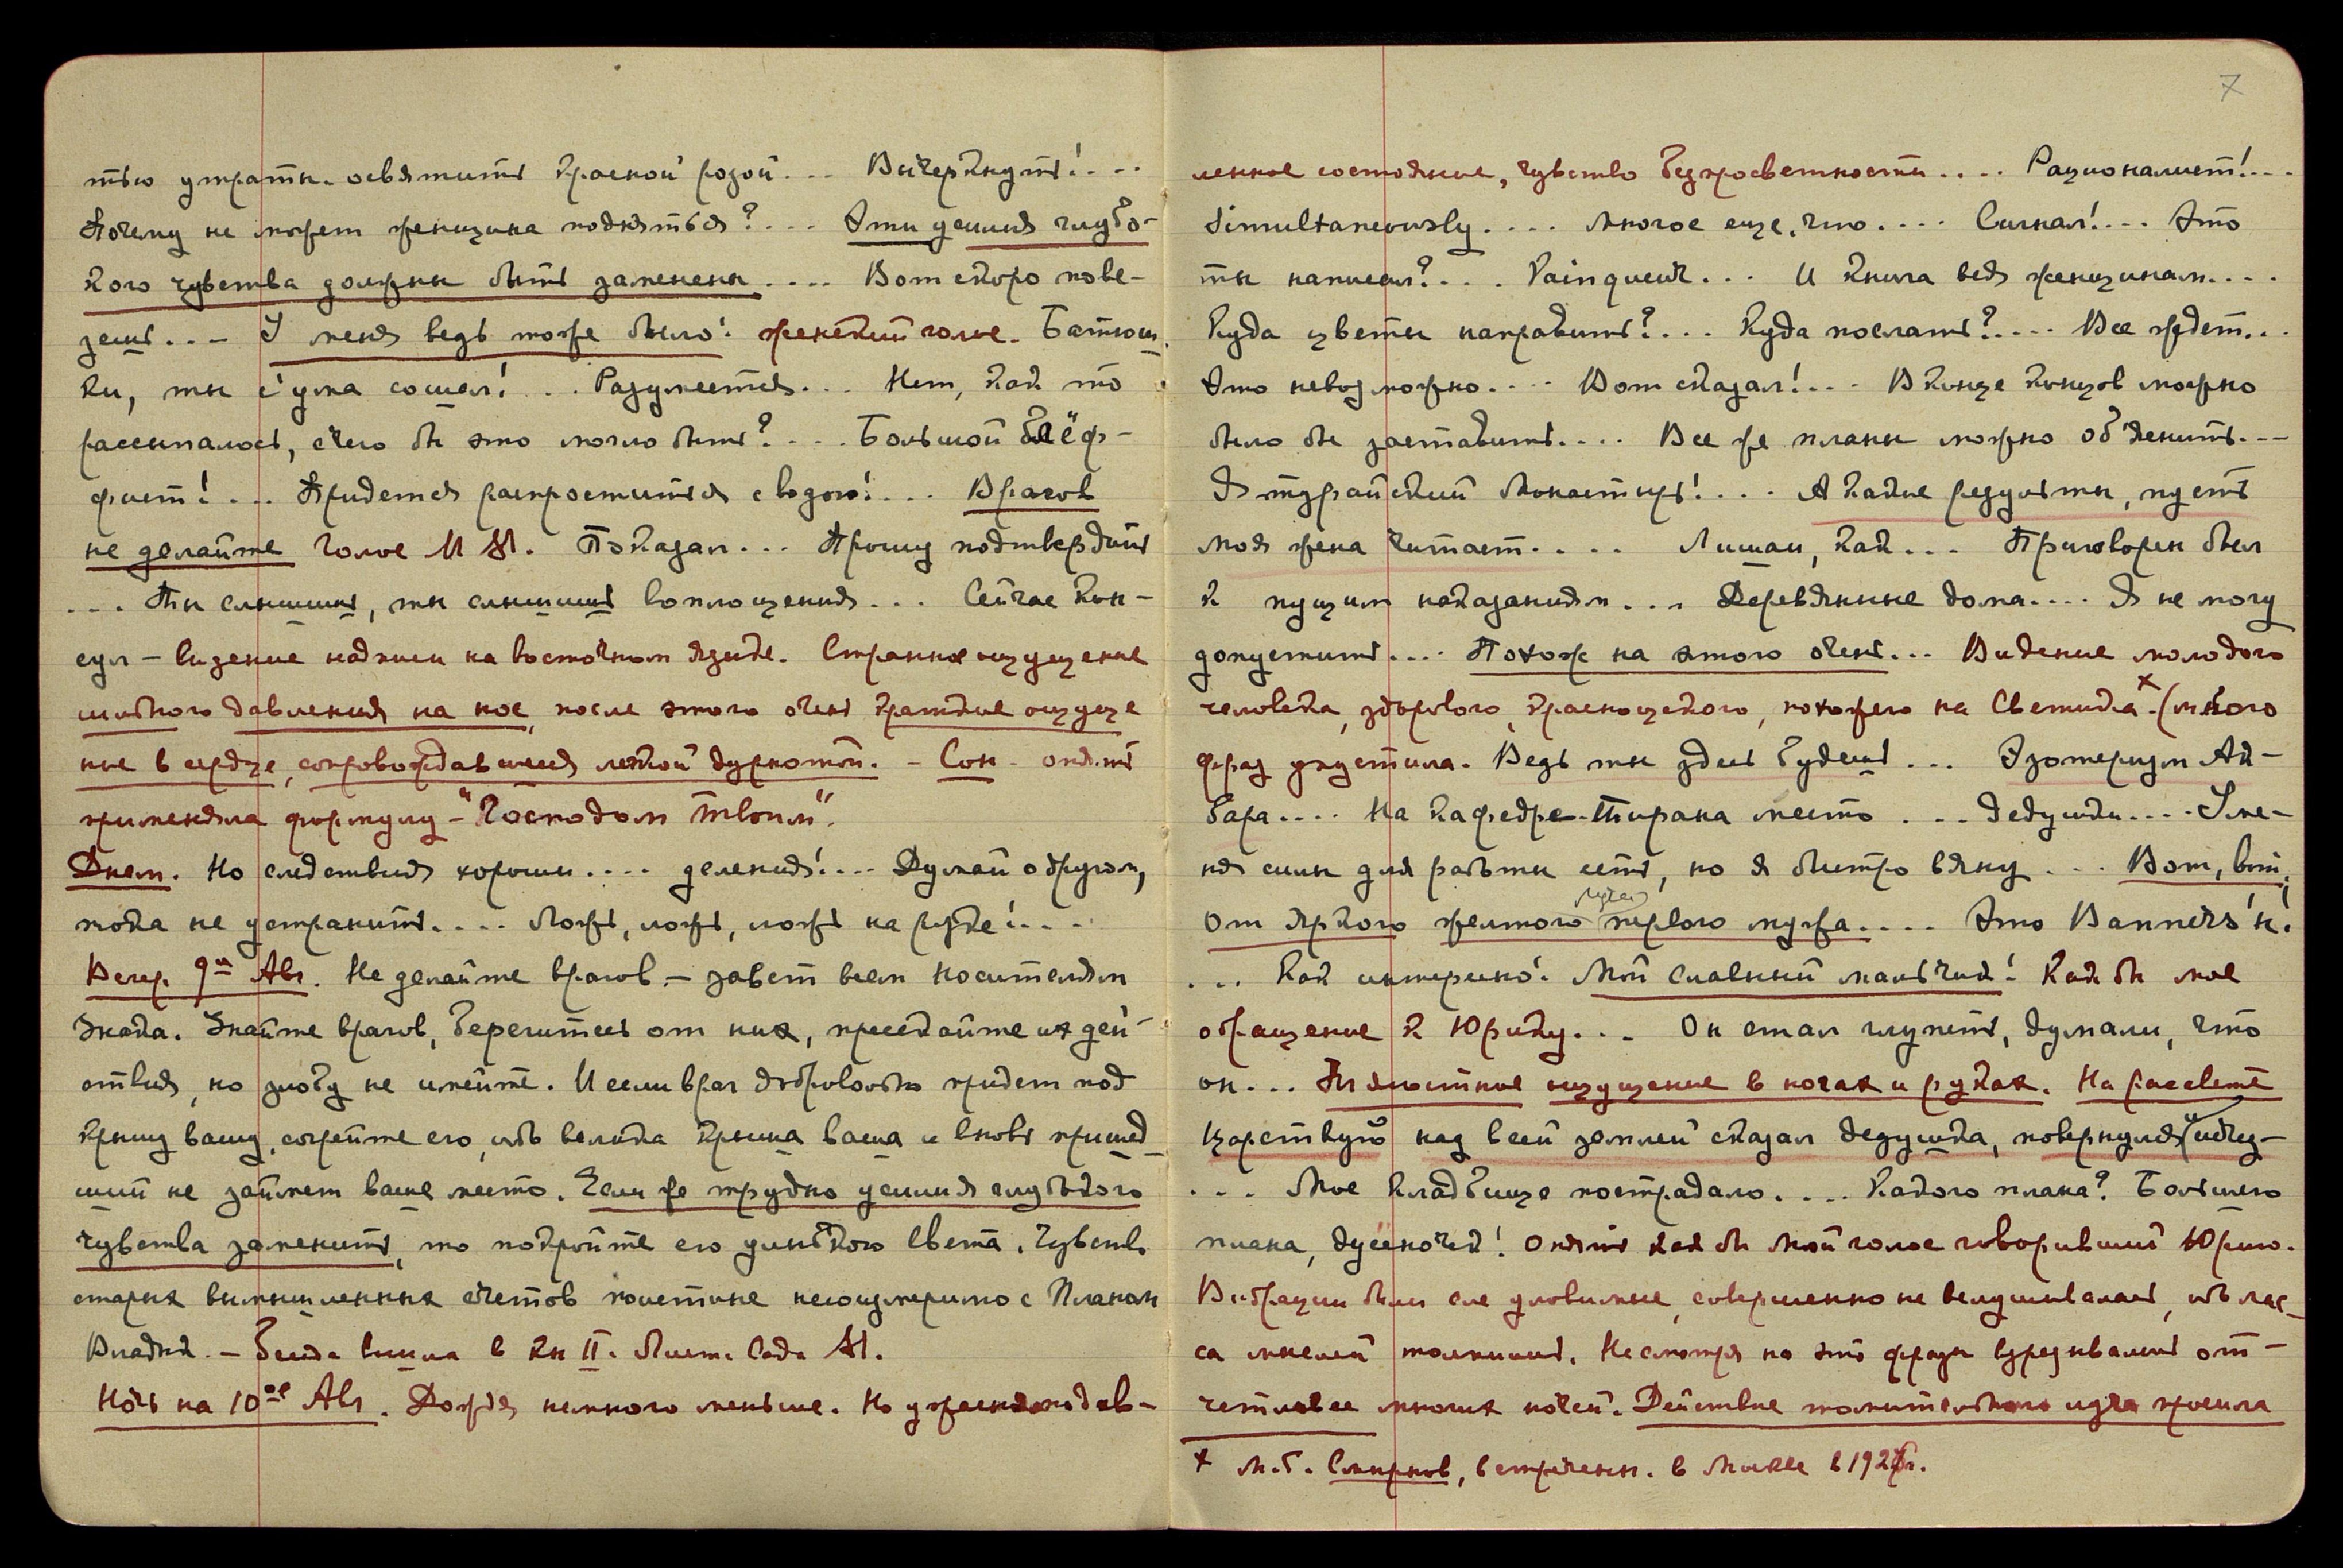 7
тью утраты. освятить красной розой... Вычеркнуть!...
Почему не может женщина подняться?... Эти усилия глубо-
кого чувства должны быть заменены.... Вот скоро пове-
зешь... У меня ведь тоже было! женский голос. Батюш
ки, ты с'ума сошел!... Разумеется... Нет, как то
рассыпалось, с чего бы это могло быть?... Большой блёф-
фист!... Придется распроститься с водою!... Врагов
не делайте Голос М. М. Показал... Прошу подтвердить
... Ты слышишь, ты слышишь воплощения... Сейчас кон-
сул - видение надписи на восточном языке. Странное ощущение
сильного давления на нос, после этого очень краткие ощуще
ние в сердце, сопровождавшиеся легкой дурнотой. - Сон - опять
применяла формулу - "Господом Твоим".
Днем. Но следствия хороши.... деления!.... Думай о другом,
пока не устранить.... Ложь, ложь, ложь на руке!....
Вечер. 9го Авг. Не делайте врагов - завет всем Носителям
Знака. Знайте врагов, берегитесь от них, пресекайте их дей-
ствия, но злобу не имейте. И если враг добровольно придет под
крышу вашу, согрейте его, ибо велика крыша ваша и вновь пришед
ший не займет ваше место. Если же трудно усилия глубокого
чувства заменить, то покройте его улыбкою света. Чувство
старых вымышленных счетов поистине несоизмеримо с Планом
Владык. - Беседа вошла в кн II. Лист. Сада М.
Ночь на 10ое Авг. Дождя немного меньше. Но ужасное подав-
ленное состояние, чувство безпросветности.... Рационалист!...
Simultaneously.... Многое еще, что.... Сигнал!.... Это
ты написал?.... Painquer... И книга ведь женщинам....
Куда цветы направить?... Куда послать?.... Все ждет...
Это невозможно.... Вот сказал!... В конце концов можно
было бы заставить.... Все же планы можно об'яснить...
Я турайский монастырь!.... А какие результаты, пусть
моя жена читает.... Лишаи, как... Приговорен был
к наказаниям... Деревянные дома.... Я не могу
допустить.... Похож на этого очень... Видение молодого
человека, здорового, краснощекого, похожего на Светика x (много
фраз упустила. Ведь ты здесь будешь... Эзотеризм Ак-
бара.... На кафедре Тирана место.... Дедушки.... У ме-
ня силы для работы есть, но я быстро вяну... Вот, вот.
луча
от яркого желтого первого мужа.... Это Banners'ы!
... Как интересно! Мой славный мальчик! Как бы мое
обращение к Юрику... Он стал глупеть, думали, что
он... Тягостное ощущение в ногах и руках. На рассвете
Царствую над всей землей сказал дедушка, повернулся и исчез-
... Мое кладбище пострадало.... Какого плана? Большего
плана, дусеночек! Опять как бы мой голос говоривший Юрию.
Вибрации были еле уловимые, совершенно не вслушивалась, ибо мас-
са мыслей толпились. Несмотря на это фразы врезывались от-
четливее многих ночей. Действие томительного луча просила
x М.Г. Смирнов, встречен. в Москве в 1926г.